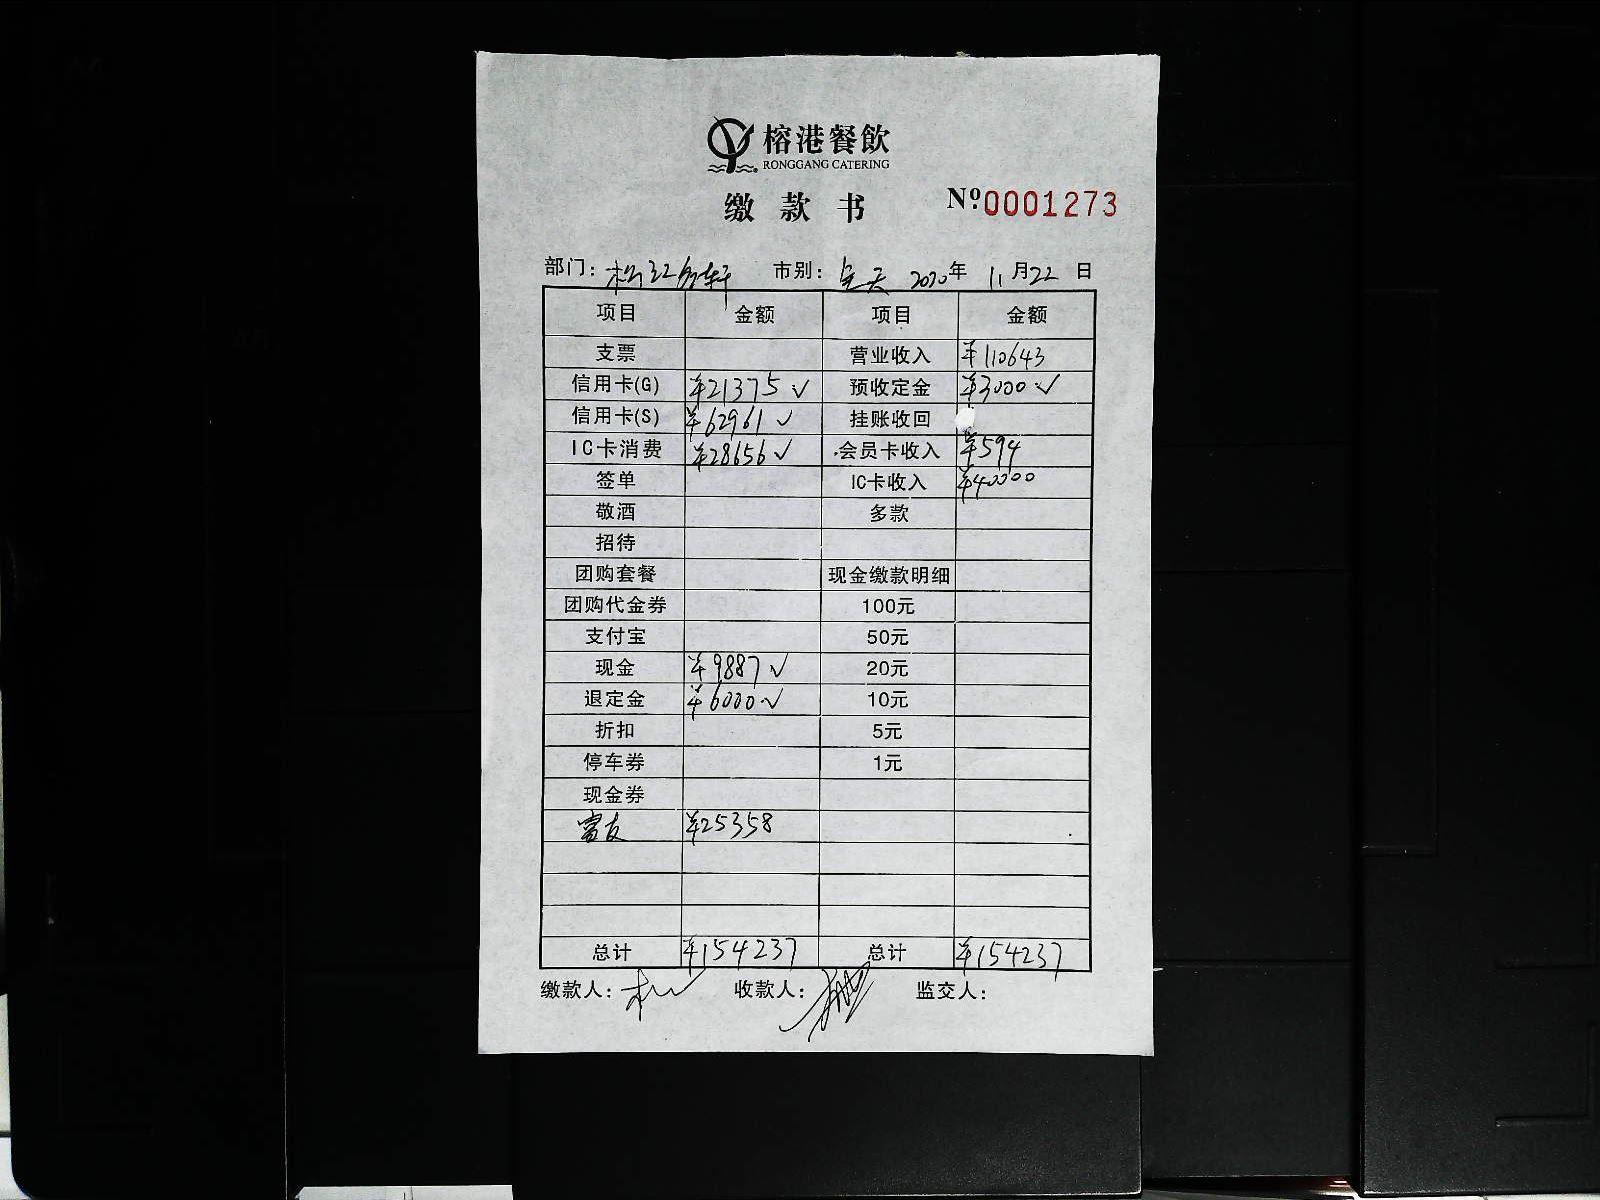 榕港餐飲
RONGGANG CATERING
缴款书 Nº 0001273
部门: 松江名轩 市别: 全天 2020年 11月22日
项目 金额 项目 金额
支票 营业收入 ¥110643
信用卡(G) ¥21375 ✓ 预收定金 ¥3000 ✓
信用卡(S) ¥62961 ✓ 挂账收回
IC卡消费 ¥28656 ✓ 会员卡收入 ¥594
签单 IC卡收入 ¥40000
敬酒 多款
招待
团购套餐 现金缴款明细
团购代金券 100元
支付宝 50元
现金 ¥9887 ✓ 20元
退定金 ¥6000 ✓ 10元
折扣 5元
停车券 1元
现金券
富友 ¥25358
总计 ¥154237 总计 ¥154237
缴款人: 收款人: 监交人: